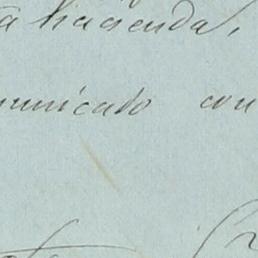 hacienda,
municado con